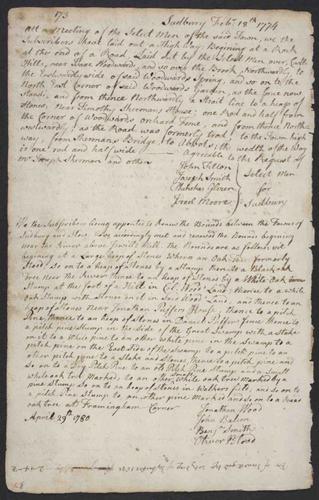 173
Sudbury Feb.y 18th 1774
Att a Meeting of the Select Men of the said Town, we the
Subscribers Have laid out a High Way, Begining at a Rock
at the end of a Road, Laid out by the Select Men over Castle
Hills, near Isaac Woodwards, and so over the Brook, Northwardly, to
the Eastwardly side of said Woodwards Spring, and so on to the
North East Corner of said Woodwards Garden, as the fence now
Stands. from thence Northwardly a Strait line to a heap of
Stones, Near Timothy Shermans House; one Rod and half from
the Corner of Woodwards orchard fence, and from thence North
westwardly, as the Road was formerly Laid to the Town high
way, from Shermans Bridge, to Bobots; the weadth of the Way
is one rod and half wide
Agreeable to the Request of
Mr. Joseph Sherman and others
John Tilton
Joseph Smith
Select Men
for
Sudbury
Israel Moore
We the Subscribers being appointed to Renew the Bounds between the Towns of
Sudbury and Stow, have accordingly met and renewed the Bounds begining
near the River above Jewells Mill. the Bounds are as follows, viz
begining at a Large heap of Stones Where an Oak tree formerly
Stood, So on to a heap of Stones by a Stump, thence to a Black oak
tree near the River thence to a heap of Stones by a White Oak
Stump at the foot of a Hill in Col. Woods Land, thence to a white
oak Stump with Stones on it in Said Woods Land, and thence to an
heap of Stones near Jonathan Puffers House, thence to a pitch
pine, thence to a heap of Stones in Daniel Puffer Junr, thence to a
pitch pine Stump in the Side of the Great Swamp with a Stake
in it to a White pine to an other White pine in the Swamp to a
pitch pine on the East Side of the Swamp to a pitch pine to an
other pitch pine to a Stake and Stones, thence to a pitch pine and
So on to a Dry Pitch Pine to an old Pitch Pine Stump and a Small
white oak tree Marked, to an other Small white oak tree marked by a
pine Stump, So on to an heap of Stones in Walkers field, and so on to
a pitch pine Stump to an other pine Marked and so on to a Grate
oak tree att Framingham Corner
April 29th 1780
Jonathan Hood
John Balcom
Benj.a Smith
Oliver Blood